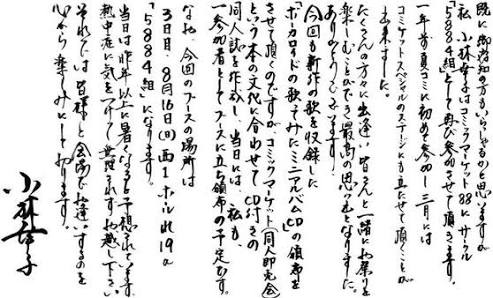 既に御存知の方もいらっしゃるかと思いますが
私 小林幸子はコミックマーケット88にサークル
「5884組」として再び参加させて頂きます。
一年前、夏コミに初めて参加し三月には
コミケットスペシャルのステージにも立たせて頂くことが
出来ました。
たくさんの方々に出逢い皆さんと一緒にお祭りを
楽しむことができ最高の思い出となりました。
ありがとうございます。
今回も新作の歌を収録した
「ボーカロイドの歌ってみたミニアルバム」CDの頒布を
させて頂くのですが、コミックマーケット(同人即売会)
という本の文化に合わせてCD付きの
同人誌を作成し、当日には、私も
一参加者としてブースに立ち頒布の予定です。
なお、今回のブースの場所は
3日目・8月16日(日)西1ホールれ19a
「5884組」になります。
当日は昨年以上に暑くなると予想されています。
熱中症に気をつけて無理されずお越し下さい
それでは皆様と会場でお逢いするのを
心から楽しみにしております。
小林幸子